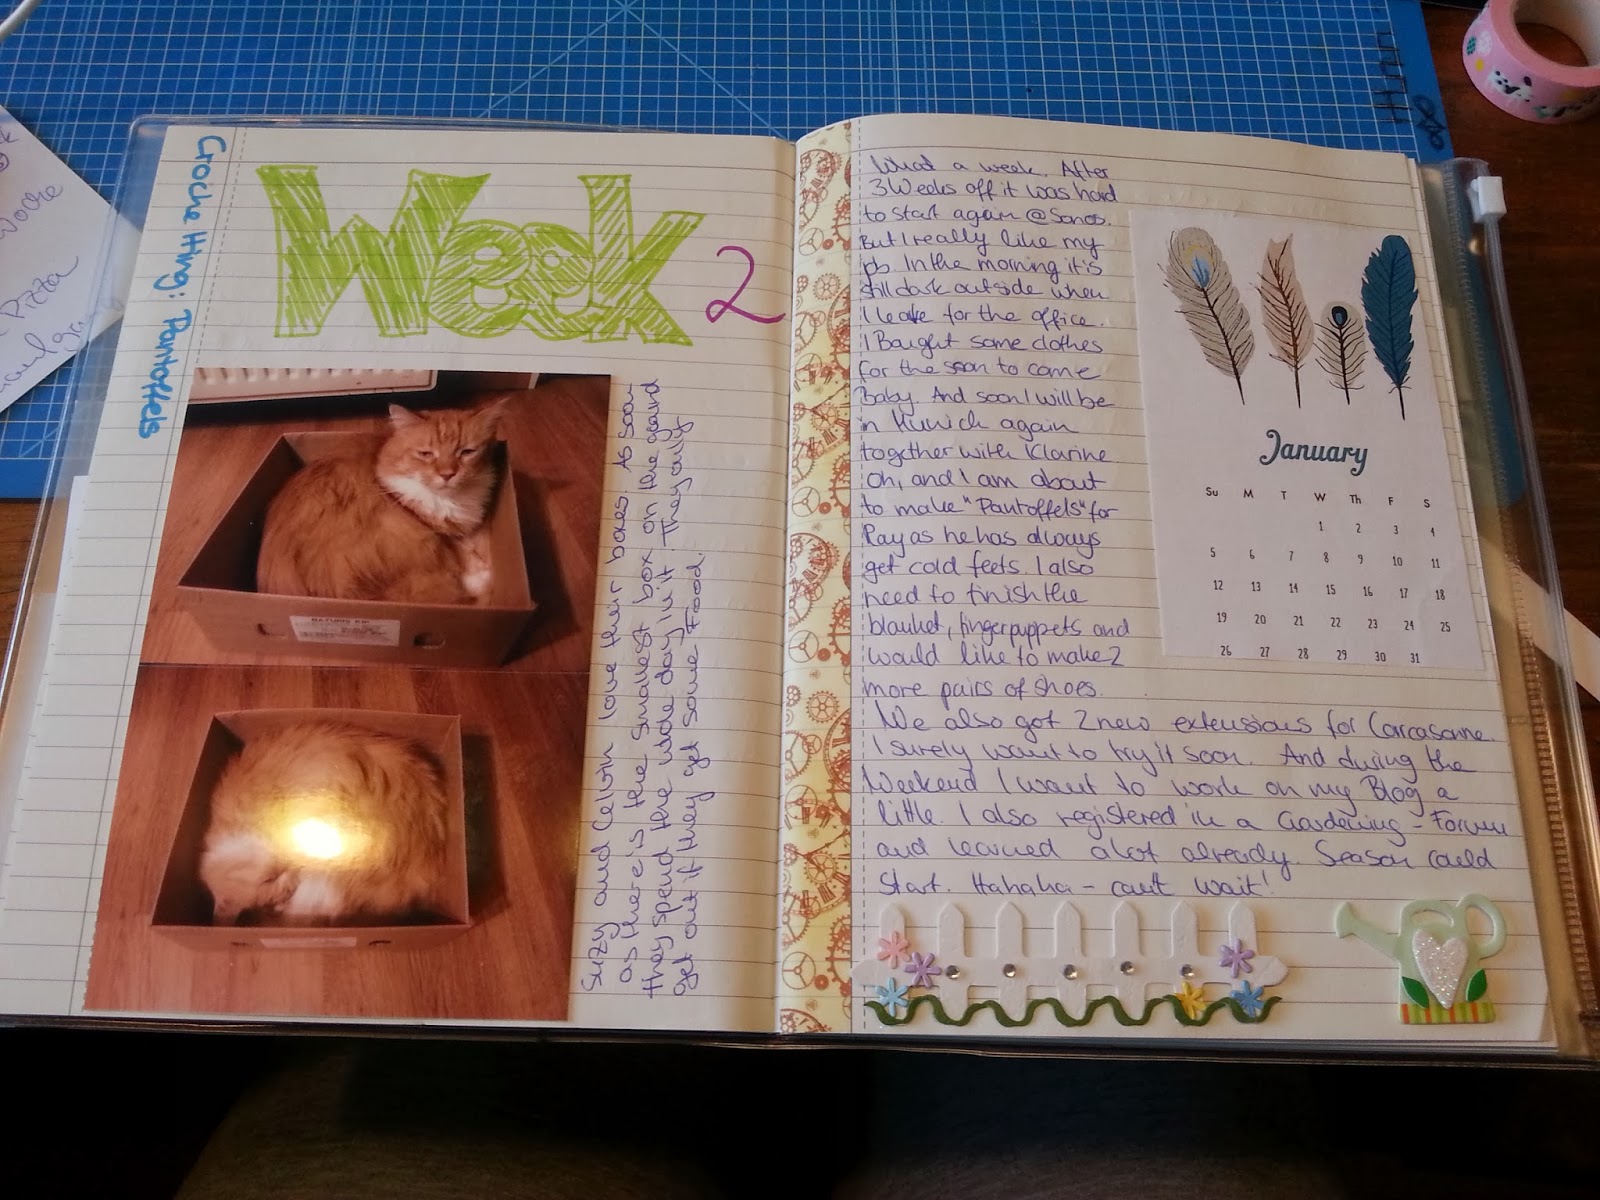 Crocheting: Pantoffels
Week 2
NATURE AID
Suzy and Celvin love their boxes. As soon
as there is the smallest box on the ground
they spend the whole day in it. They only
get out if they get some Food.
What a week. After
3 Weeks off it was hard
to start again @Sonos.
But I really like my
job. In the morning it's
still dark outside when
I leave for the office.
I Bought some clothes
for the soon to come
Baby. And soon I will be
in Munich again
together with Klarine
Oh, and I am about
to make "Pantoffels" for
Ray as he has always
get cold feets. I also
need to finish the
blanket, fingerpuppets and
would like to make 2
more pairs of shoes.
We also got 2 new extenssions for Carcasonne.
I surely want to try it soon. And during the
Weekend I want to work on my Blog a
little. I also registered in a Gardening-Forum
and learned alot already. Season could
Start. Hahaha - can't wait!
January
Su M T W Th F S
1 2 3 4
5 6 7 8 9 10 11
12 13 14 15 16 17 18
19 20 21 22 23 24 25
26 27 28 29 30 31
Woche
Pizza